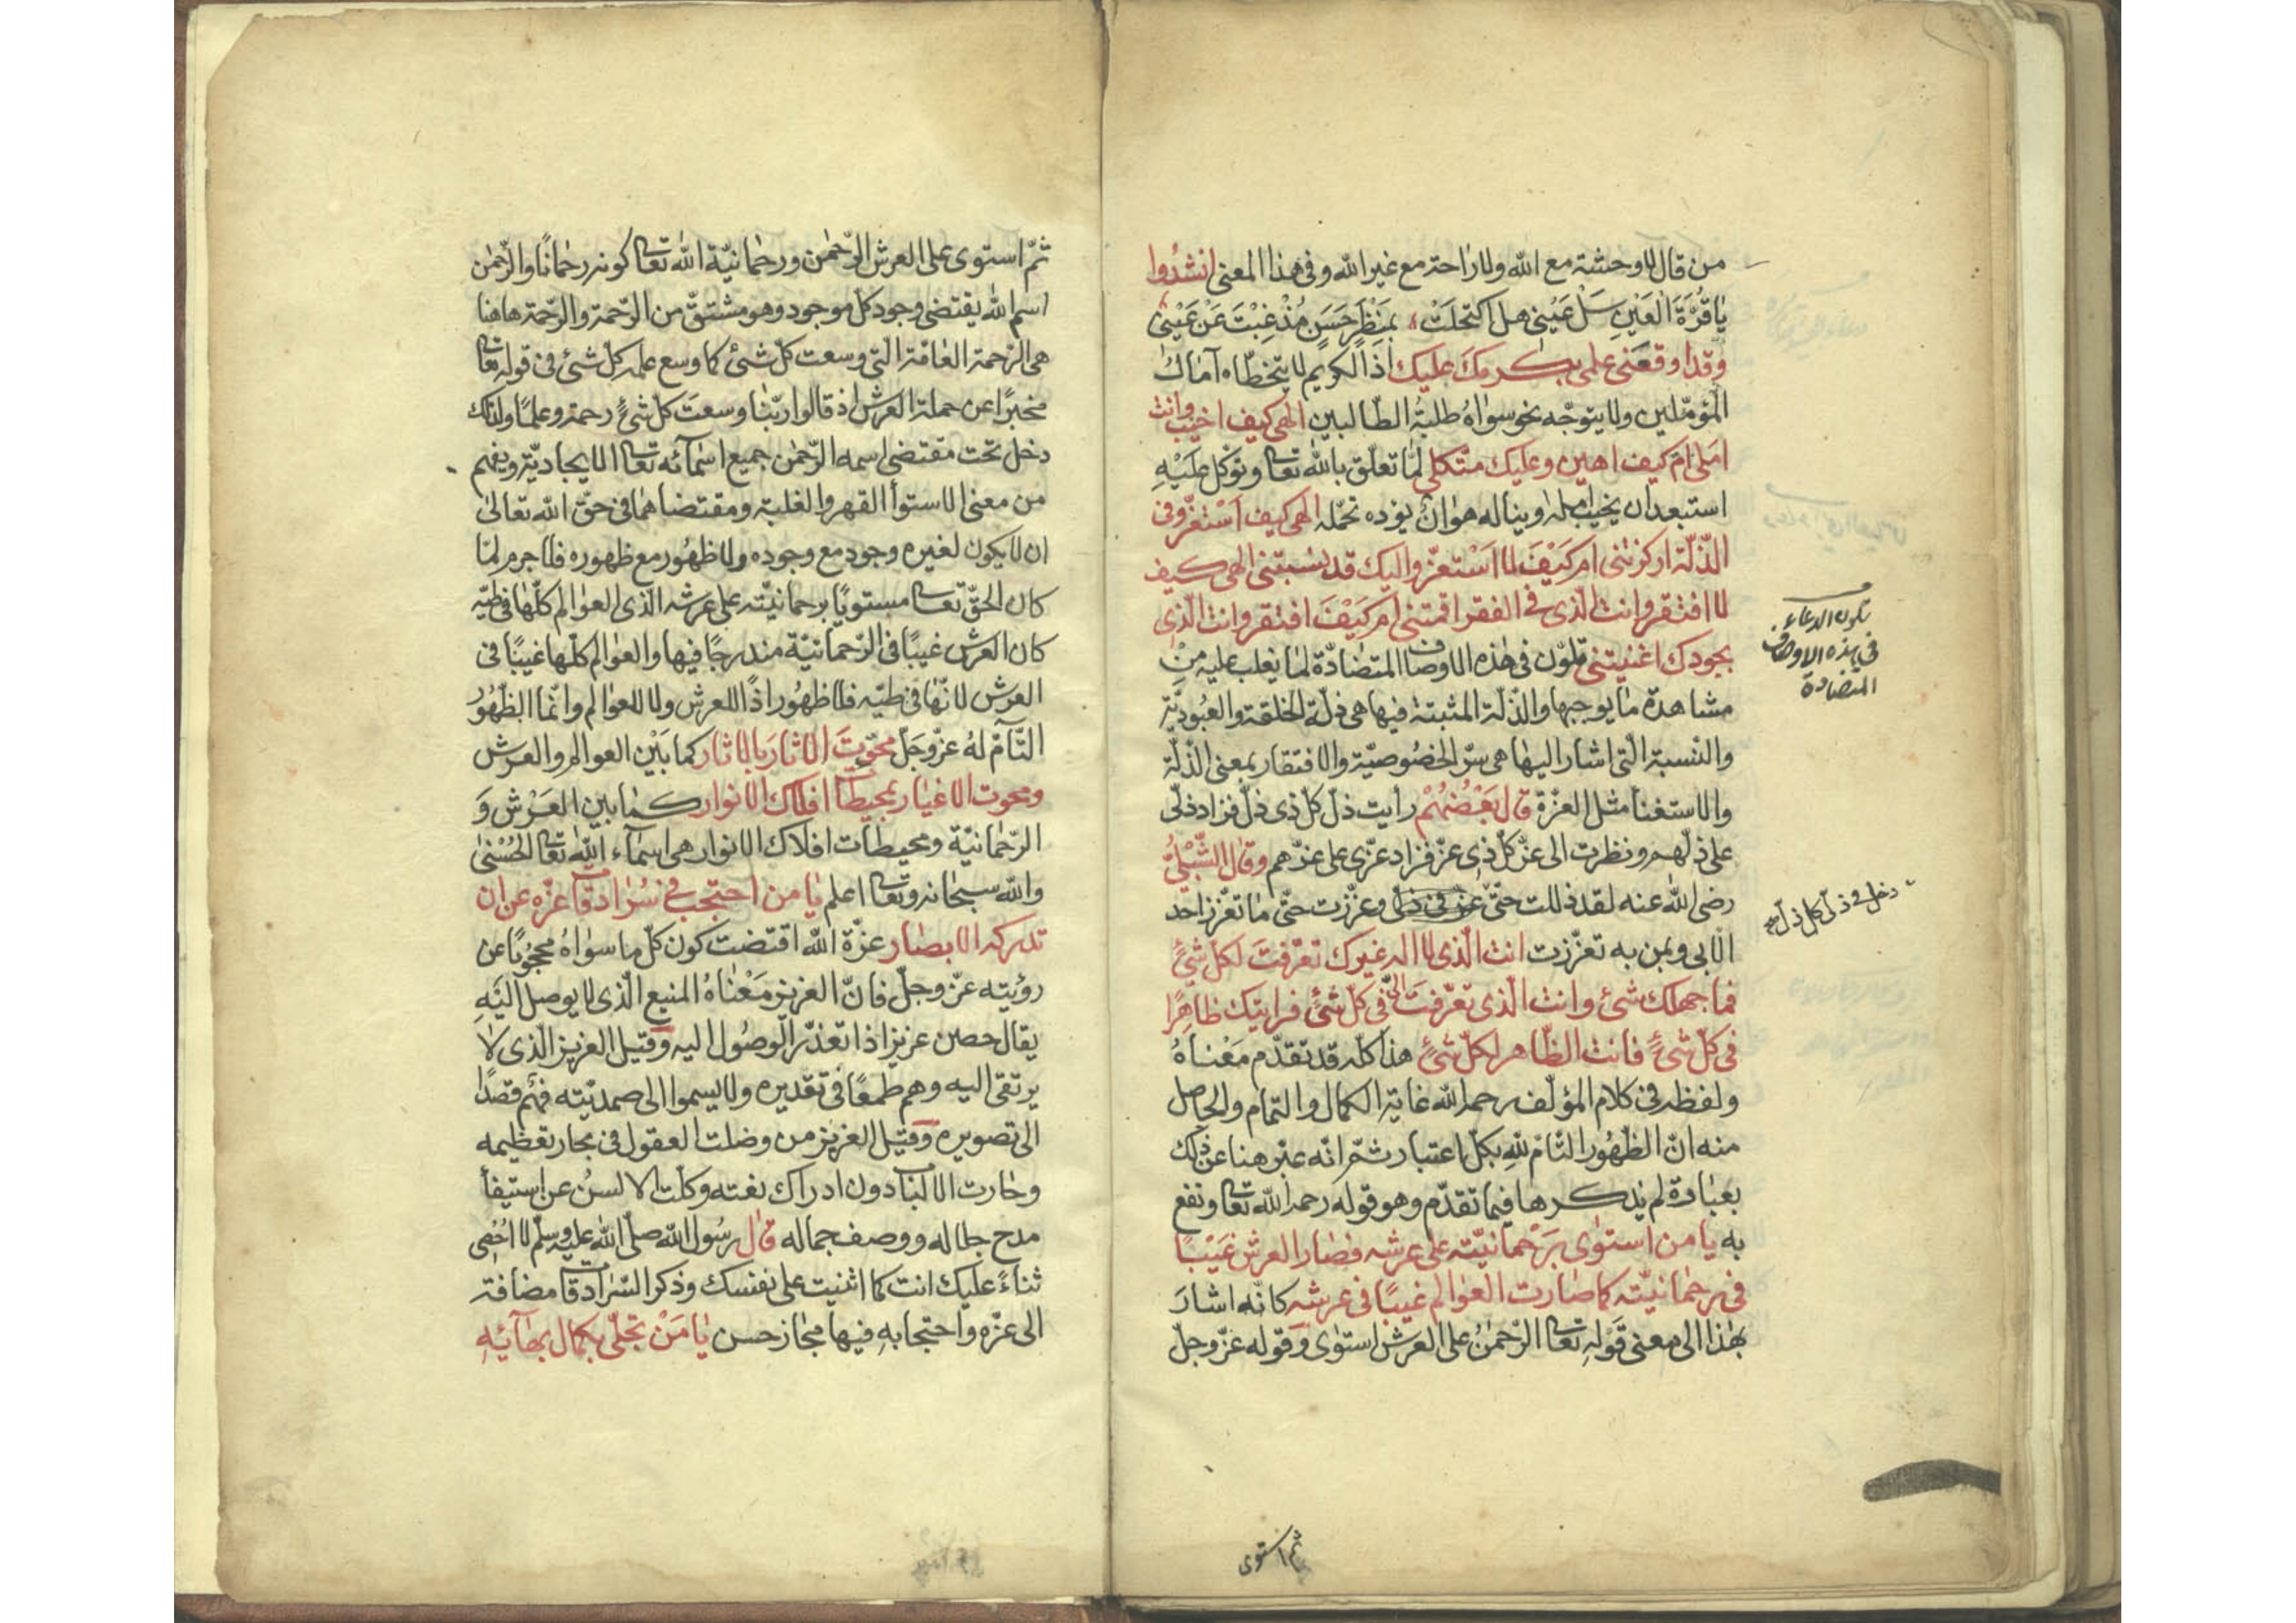 من قال لا وحشة مع الله ولا راحة مع غير الله وفي هذا المعنى انشدُوا
يا قُرَّةَ العَيْنِ سَلْ عَيْنِى هل اكتحلَتْ بمَنْظَرٍ حَسَنٍ مُذْ غِبْتَ عَنْ عَيْنِى
وقد اوقعَنى علمى بكرمكَ عليك اذ الكريم لا يتخطّاه آمال
المؤمّلين ولا يتوجّه نحو سواهُ طلبة الطالبين الهى كيف اخيب وانت
املى ام كيف اهين وعليك متّكلى لمّا تعلّق بالله تعا وتوكّل عَلَيْهِ
استبعد ان يخيب امله وينا له هوان يؤده تحمّله الهى كيف اسْتعزّ وفى
الذّلّة اركزتنى ام كَيْفَ لا اسْتعزّ واليك قد نسبتنى الهى كيف
لا افتقر وانت الّذى فى الفقر اقمتنى ام كَيْفَ افتقر وانت الّذى
بجودك اغنيتنى تلوّن فى هذه الاوصاف المتضادّة لما يغلب عليه مِنْ
مشاهدة ما يوجبها والذّلّة المثبتة فيها هى ذلّة الخلقة والعُبُوديّة
والنّسبة الّتى اشار اليها هى سرّ الخصُوصيّة والافتقار بمعنى الذّلّة
والاستغنا مثل العزّة قال بَعْضُهُمْ رأيت ذلّ كلّ ذى ذلّ فزاد ذلّى
على ذلّهم ونظرت الى عزّ كلّ ذى عزّ فزاد عزّى على عزّهم وقال الشّبْلِىُّ
رضى الله عنه لقد ذللت حتّى عزّ فى ذلّى وعزّزت حتّى ما تعزّز احد
الّا بى وبمن به تعزّزت انت الّذى لا اله غيرك تعرّفتَ لكل شئٍ
فما جهلك شئ وانت الّذى تعرّفتَ الىّ فى كلّ شئٍ فرايتك ظاهِرًا
فى كلّ شئٍ فانت الظّاهر لكلّ شئٍ هذا كلّه قد تقدّم مَعْناهُ
ولفظه فى كلام المؤلّف رحمه الله غاية الكمال والتمام والحاصل
منه انّ الظّهُور التّامّ لِلّهِ بكلّ اعتبار ثمّ انّه عبّر هنا عن ذلك
بعبارة لم يذكرها فيما تقدّم وهو قوله رحمه الله تعا ونفع
به يا من استوٰى بَرَحْمانيّته على عرشه فصار العرش غَيْبًا
فى رحمانيّته كما صارت العوالم غيبًا فى عرشه كانّه اشارَ
بهذا الى معنى قَوْله تعا الرّحمٰنُ على العرش استوٰى وقوله عزّ وجلّ
تلون الدعاء
فى هذه الاوصاف
المتضادة
دخل فى ذلّى كل ذلّ صح
ثم استوى
ثمّ استوى على العرش الرّحمٰن ورحمانيّة الله تعا كونه رحمانًا والرّحمٰن
اسم لله يقتضى وجود كلّ موجود وهو مشتقّ من الرّحمة والرّحمة هاهنا
هى الرّحمة العامّة الّتى وسعت كلّ شئ كما وسع علمه كلّ شئ فى قوله تعا
مخبرًا عن حملة العرش اذ قالوا ربّنا وسعتَ كل شئٍ رحمة وعلمًا ولذلك
دخل تحت مقتضى اسمه الرّحمٰن جميع اسمائه تعا الايجاديّة ويفهم
من معنى الاستوأ القهر والغلبة ومقتضاهما فى حقّ الله تعالىٰ
ان لا يكون لغيره وجود مع وجوده ولا ظهُور مع ظهوره فلا جرم لمّا
كان الحقّ تعا مستويًا برحمانيّته على عرشه الّذى العوالم كلّها فى طيّه
كان العرش غيبًا فى الرّحمانيّة مندرجًا فيها والعوالم كلّها غيبًا فى
العرش لانّها فى طيّه فلا ظهُور اذًا للعرش ولا للعوالم وانّما الظّهُورُ
التّامّ لهُ عزّ وجَلّ محوْتَ الاثارَ بالاثار كما بَيْن العوالم والعرش
ومحوت الاغيار بمحيطات افلاك الانوار كما بين العَرْش وَ
الرّحمانيّة ومحيطات افلاك الانوار هى اسمآء الله تعا الحُسْنىٰ
والله سبحانه وتعا اعلم يا من احتجب فى سُرادقات عزّه عن ان
تدركه الابصار عزّة الله اقتضت كون كلّ ما سواهُ محجُوبًا عن
رؤيته عزّ وجلّ فانّ العزيز مَعْناهُ المنيع الّذى لا يوصل الَيْهِ
يقال حصن عزيز اذا تعذّر الوصُول اليه وقيل العزيز الّذى لا
يرتقى اليه وهم طمعًا فى تقديره ولا يسموا الى صمديّته فهْم قصدًا
الى تصويره وقيل العزيز من وضلت العقول فى بحار تعظيمه
وحارت الالباب دون ادراك نعته وكلّت الالسنُ عن استيفأ
مدح جلاله ووصف جماله قال رسُول الله صلّى الله عليه وسلّم لا احُصِى
ثناءً عليك انت كما اثنيت على نفسك وذكر السّرادقات مضافة
الى عزّه واحتجابهِ فيها مجاز حسن يا مَنْ تجلّى بكمال بهآئِهِ